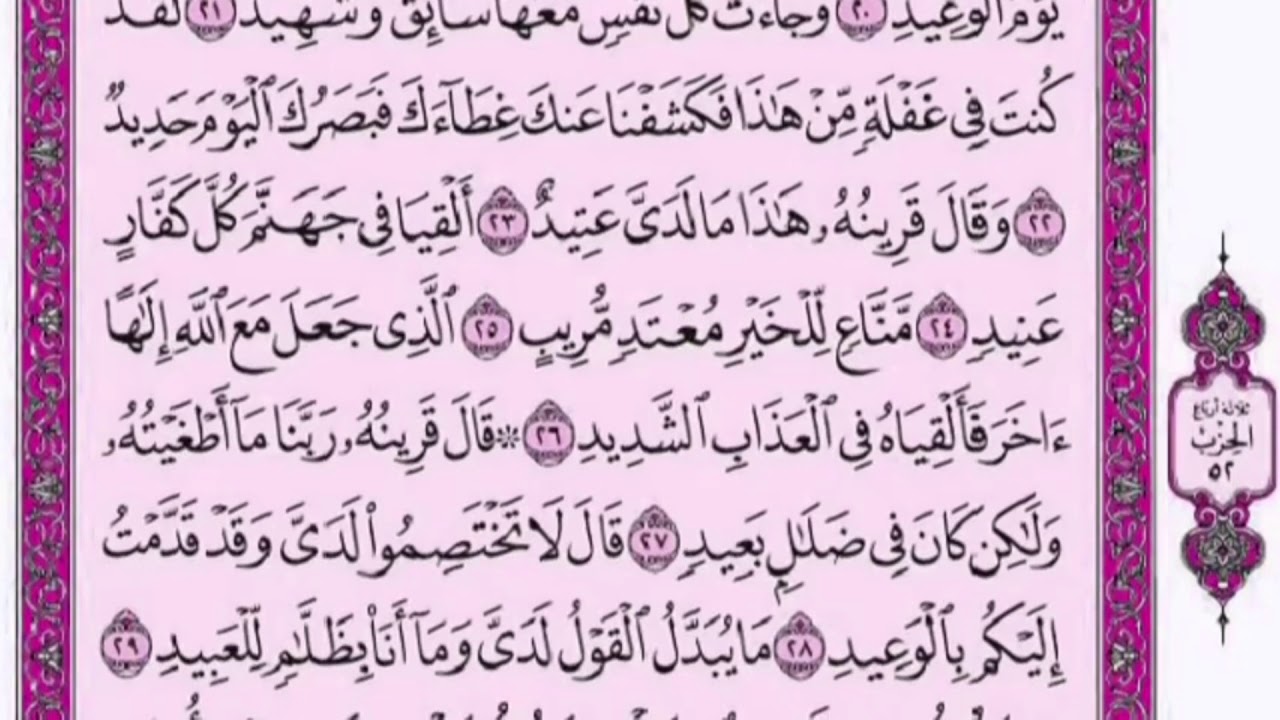 يَوْمُ الْوَعِيدِ ٢٠ وَجَاءَتْ كُلُّ نَفْسٍ مَّعَهَا سَائِقٌ وَشَهِيدٌ ٢١ لَّقَدْ
كُنتَ فِي غَفْلَةٍ مِّنْ هَٰذَا فَكَشَفْنَا عَنكَ غِطَآءَكَ فَبَصَرُكَ ٱلْيَوْمَ حَدِيدٌ
٢٢ وَقَالَ قَرِينُهُۥ هَٰذَا مَا لَدَىَّ عَتِيدٌ ٢٣ أَلْقِيَا فِى جَهَنَّمَ كُلَّ كَفَّارٍ
عَنِيدٍ ٢٤ مَّنَّاعٍ لِّلْخَيْرِ مُعْتَدٍ مُّرِيبٍ ٢٥ ٱلَّذِى جَعَلَ مَعَ ٱللَّهِ إِلَٰهًا
ءَاخَرَ فَأَلْقِيَاهُ فِى ٱلْعَذَابِ ٱلشَّدِيدِ ٢٦ ۞ قَالَ قَرِينُهُۥ رَبَّنَا مَآ أَطْغَيْتُهُۥ
وَلَٰكِن كَانَ فِى ضَلَٰلٍۭ بَعِيدٍ ٢٧ قَالَ لَا تَخْتَصِمُوا۟ لَدَىَّ وَقَدْ قَدَّمْتُ
إِلَيْكُم بِٱلْوَعِيدِ ٢٨ مَا يُبَدَّلُ ٱلْقَوْلُ لَدَىَّ وَمَآ أَنَا۠ بِظَلَّٰمٍ لِّلْعَبِيدِ ٢٩
ثلاثة أرباع
الحزب
٥٢